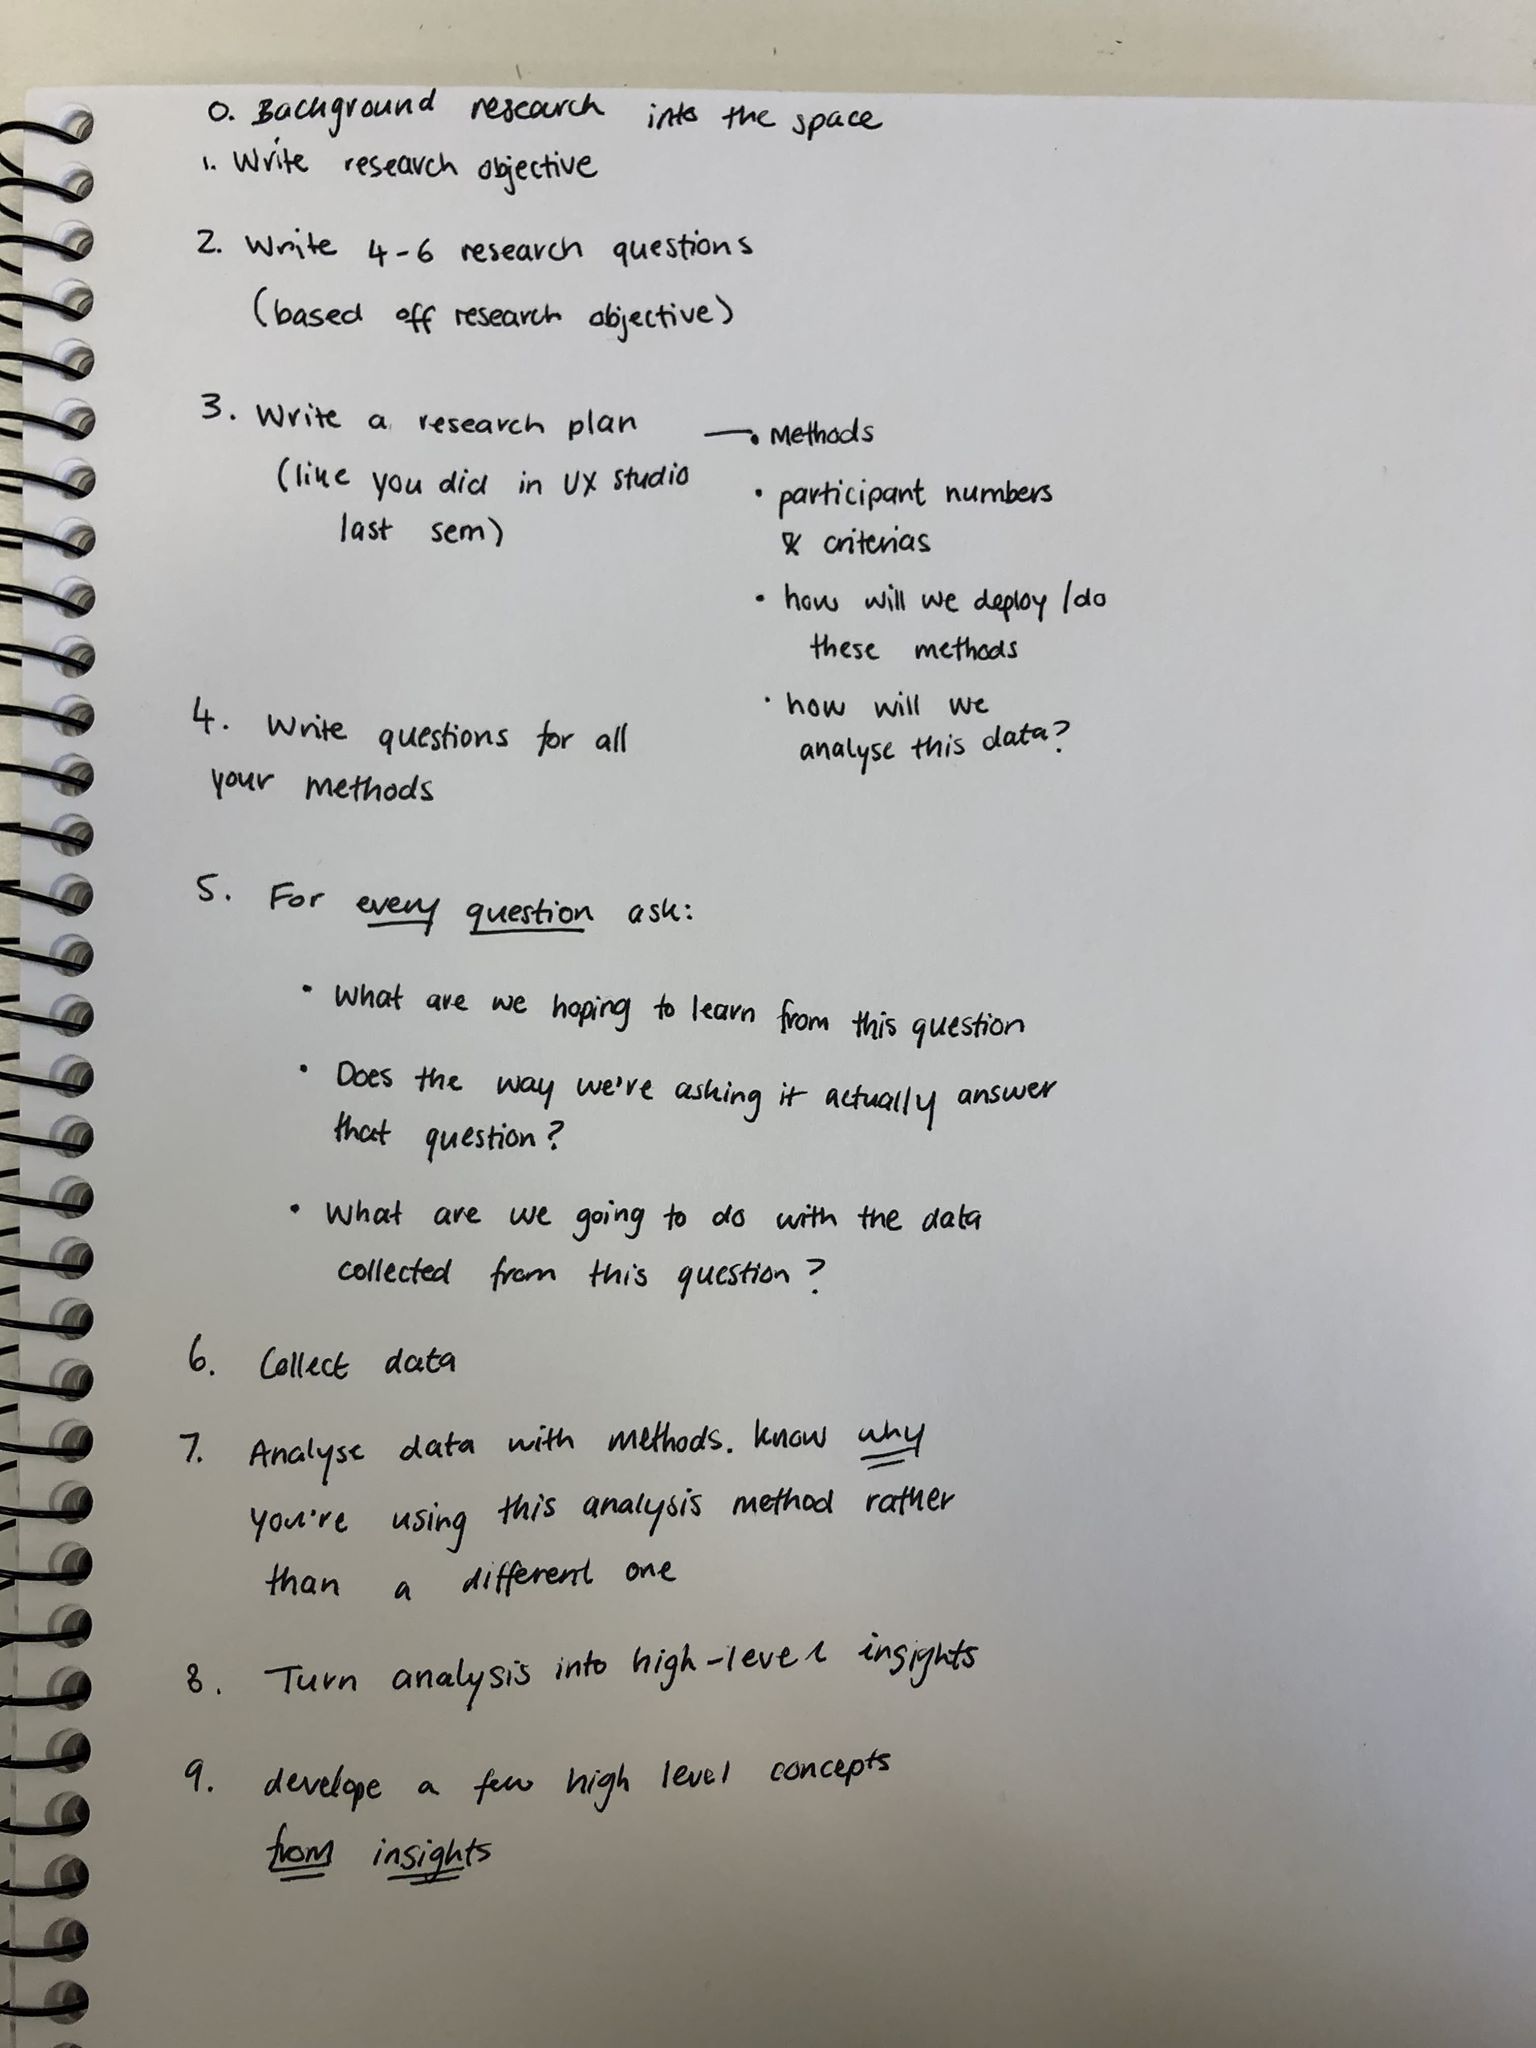 0. Background research into the space
1. Write research objective
2. Write 4-6 research questions
(based off research objective)
3. Write a research plan
(like you did in UX studio
last sem)
• Methods
• participant numbers
& criterias
• how will we deploy / do
these methods
• how will we
analyse this data?
4. Write questions for all
your methods
5. For every question ask:
• What are we hoping to learn from this question
• Does the way we're asking it actually answer
that question?
• What are we going to do with the data
collected from this question?
6. Collect data
7. Analyse data with methods. know why
you're using this analysis method rather
than a different one
8. Turn analysis into high-level insights
9. develope a few high level concepts
from insights